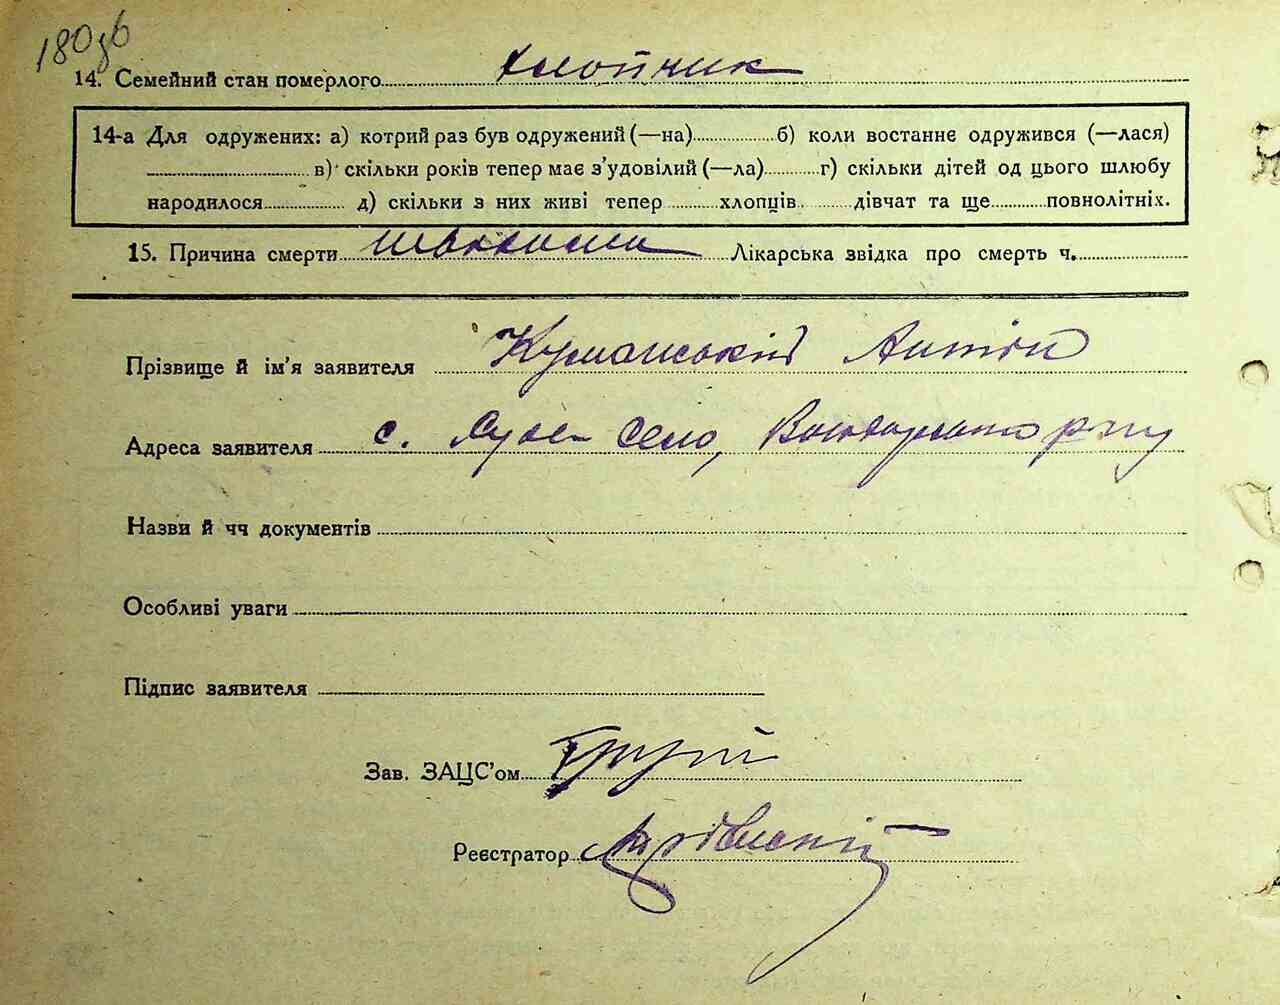 180зв
14. Семейний стан померлого хлопчик
14-а Для одружених: а) котрий раз був одружений (—на) б) коли востаннє одружився (—лася)
в) скільки років тепер має з'удовілий (—ла) г) скільки дітей од цього шлюбу
народилося д) скільки з них живі тепер хлопців дівчат та ще повнолітніх.
15. Причина смерти Лікарська звідка про смерть ч.
Прізвище й ім'я заявителя Куманський Антін
Адреса заявителя с. село,
Назви й чч документів
Особливі уваги
Підпис заявителя
Зав. ЗАЦС'ом
Реєстратор